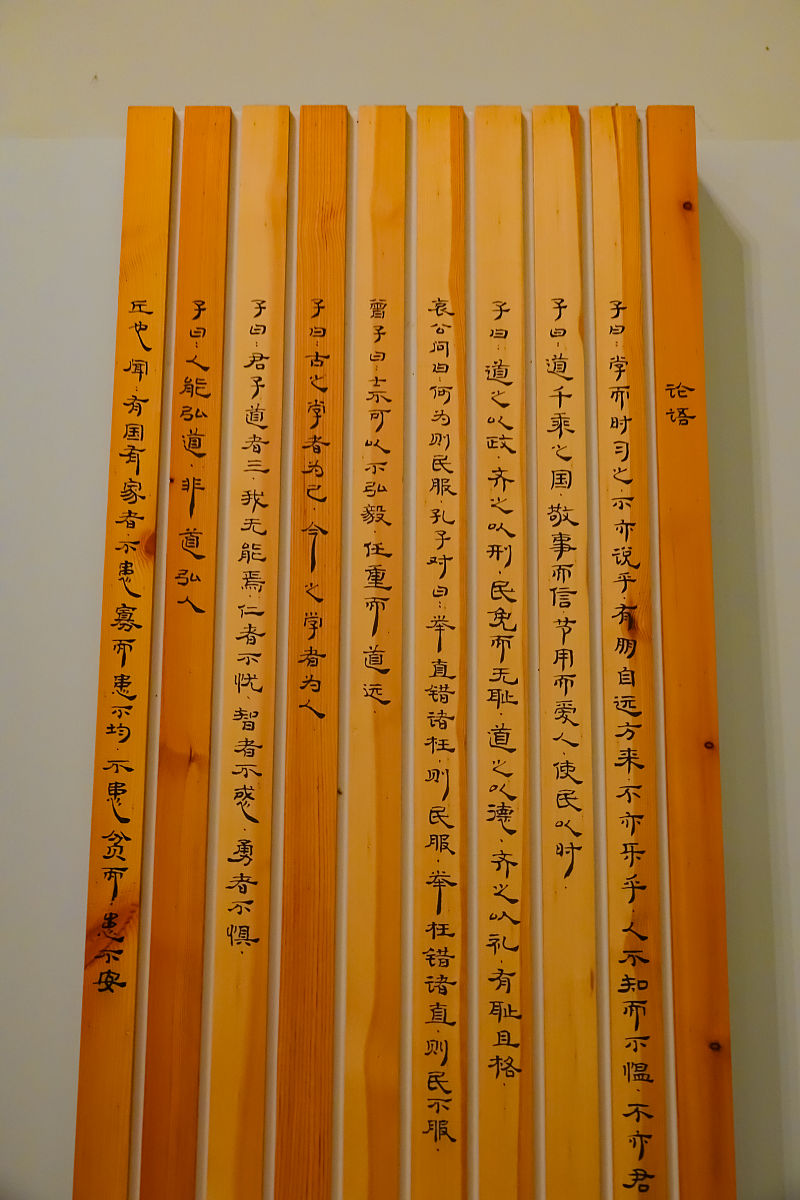 论语
子曰：学而时习之·不亦说乎·有朋自远方来·不亦乐乎·人不知而不愠·不亦君
子曰：道千乘之国·敬事而信·节用而爱人·使民以时·
子曰：道之以政·齐之以刑·民免而无耻·道之以德·齐之以礼·有耻且格·
哀公问曰：何为则民服·孔子对曰：举直错诸枉·则民服·举枉错诸直·则民不服·
曾子曰：士不可以不弘毅·任重而道远·
子曰：古之学者为己·今之学者为人
子曰：君子道者三·我无能焉·仁者不忧·智者不惑·勇者不惧·
子曰：人能弘道·非道弘人
丘也闻：有国有家者·不患寡而患不均·不患贫而·患不安